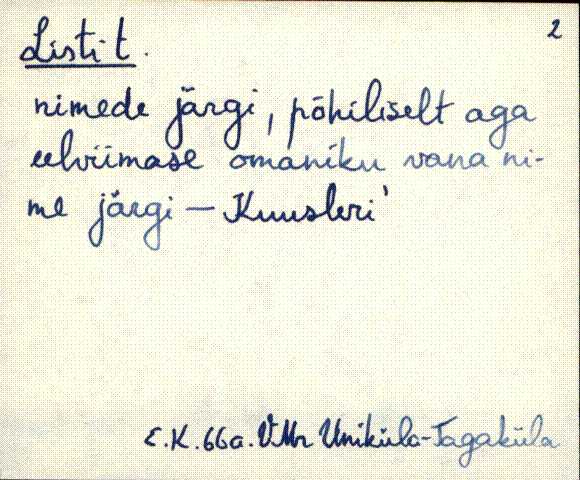 2
Listi t.
nimede järgi, põhiliselt aga
eelviimase omaniku vana ni-
me järgi – Kuusleri'
E.K. 66a. VMr Uniküla-Tagaküla